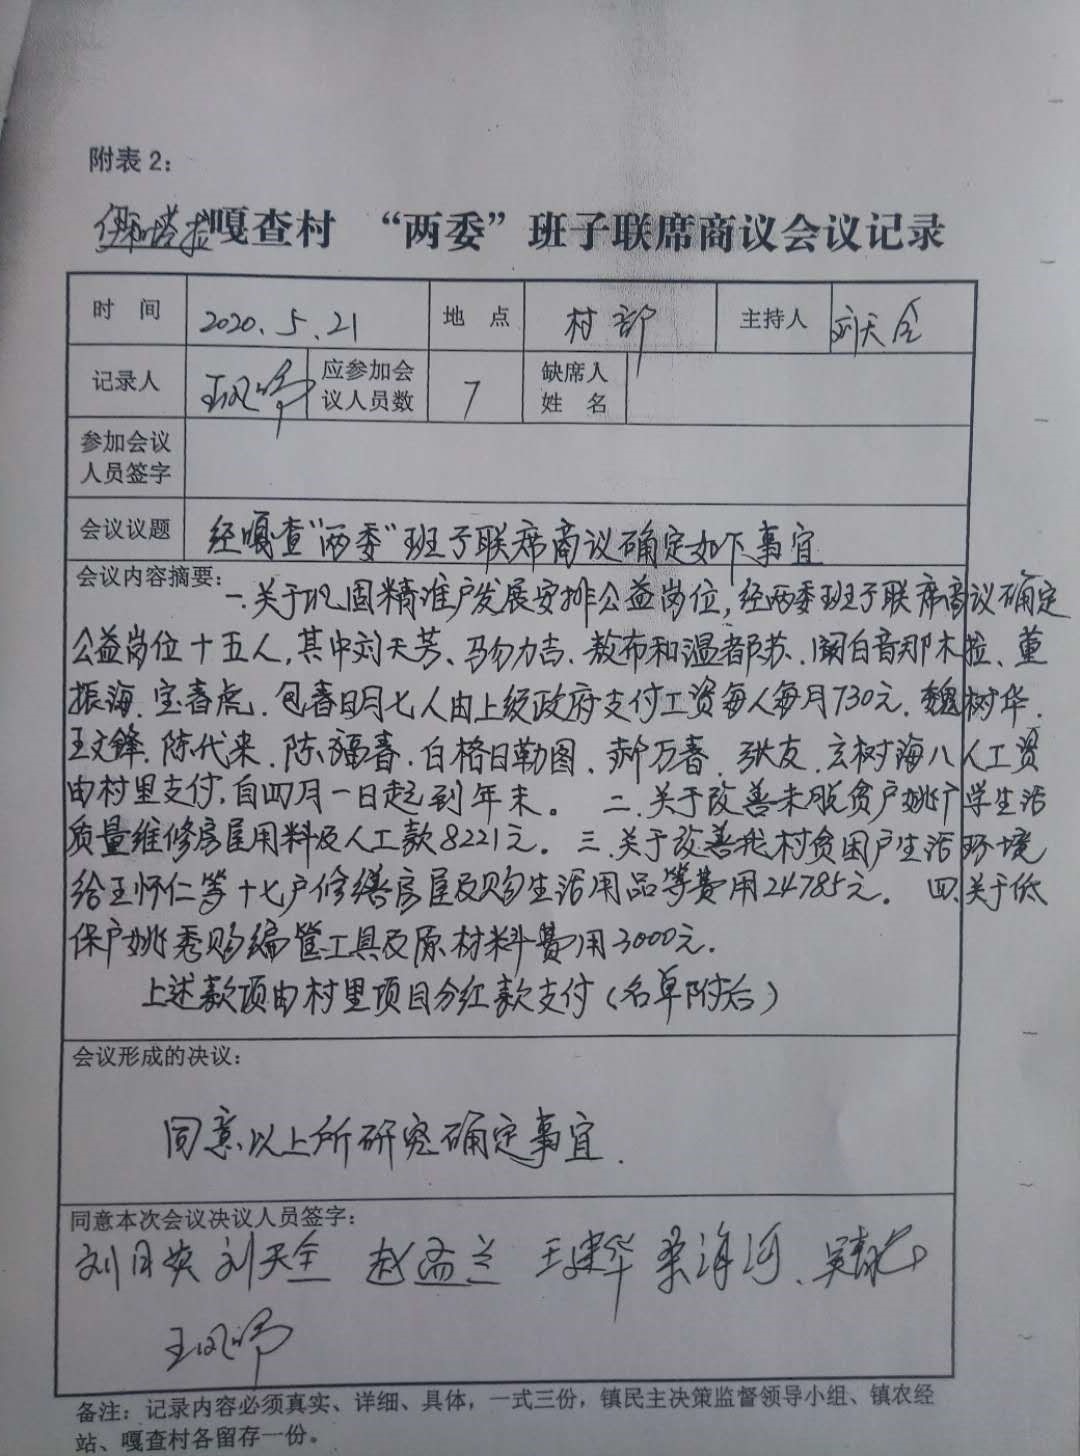 附表 2：
嘎查村 “两委”班子联席商议会议记录
时 间 2020.5.21 地 点 村部 主持人 刘天全
记录人 应参加会议人员数 7 缺席人姓 名
参加会议人员签字
会议议题 经嘎查“两委”班子联席商议确定如下事宜
会议内容摘要：
一.关于巩固精准户发展安排公益岗位,经两委班子联席商议确定
公益岗位十五人,其中刘天芳、马勿力吉、敖布和温都苏、阚白音那木拉、董
振海、宝春虎、包春日月七人由上级政府支付工资每人每月730元,魏树华、
王文锋、陈代来、陈福春、白格日勒图、郝万春、张友、玄树海八人工资
由村里支付,自四月一日起到年末。 二.关于改善未脱贫户姚广学生活
质量维修房屋用料及人工款8221元。三.关于改善我村贫困户生活环境
给王怀仁等十七户修缮房屋及购生活用品等费用24785元。 四.关于低
保户姚秀购编筐工具及原材料费用3000元.
上述款项由村里项目分红款支付(名单附后)
会议形成的决议：
同意以上所研究确定事宜.
同意本次会议决议人员签字：
刘天全 王建华
备注：记录内容必须真实、详细、具体，一式三份，镇民主决策监督领导小组、镇农经
站、嘎查村各留存一份。